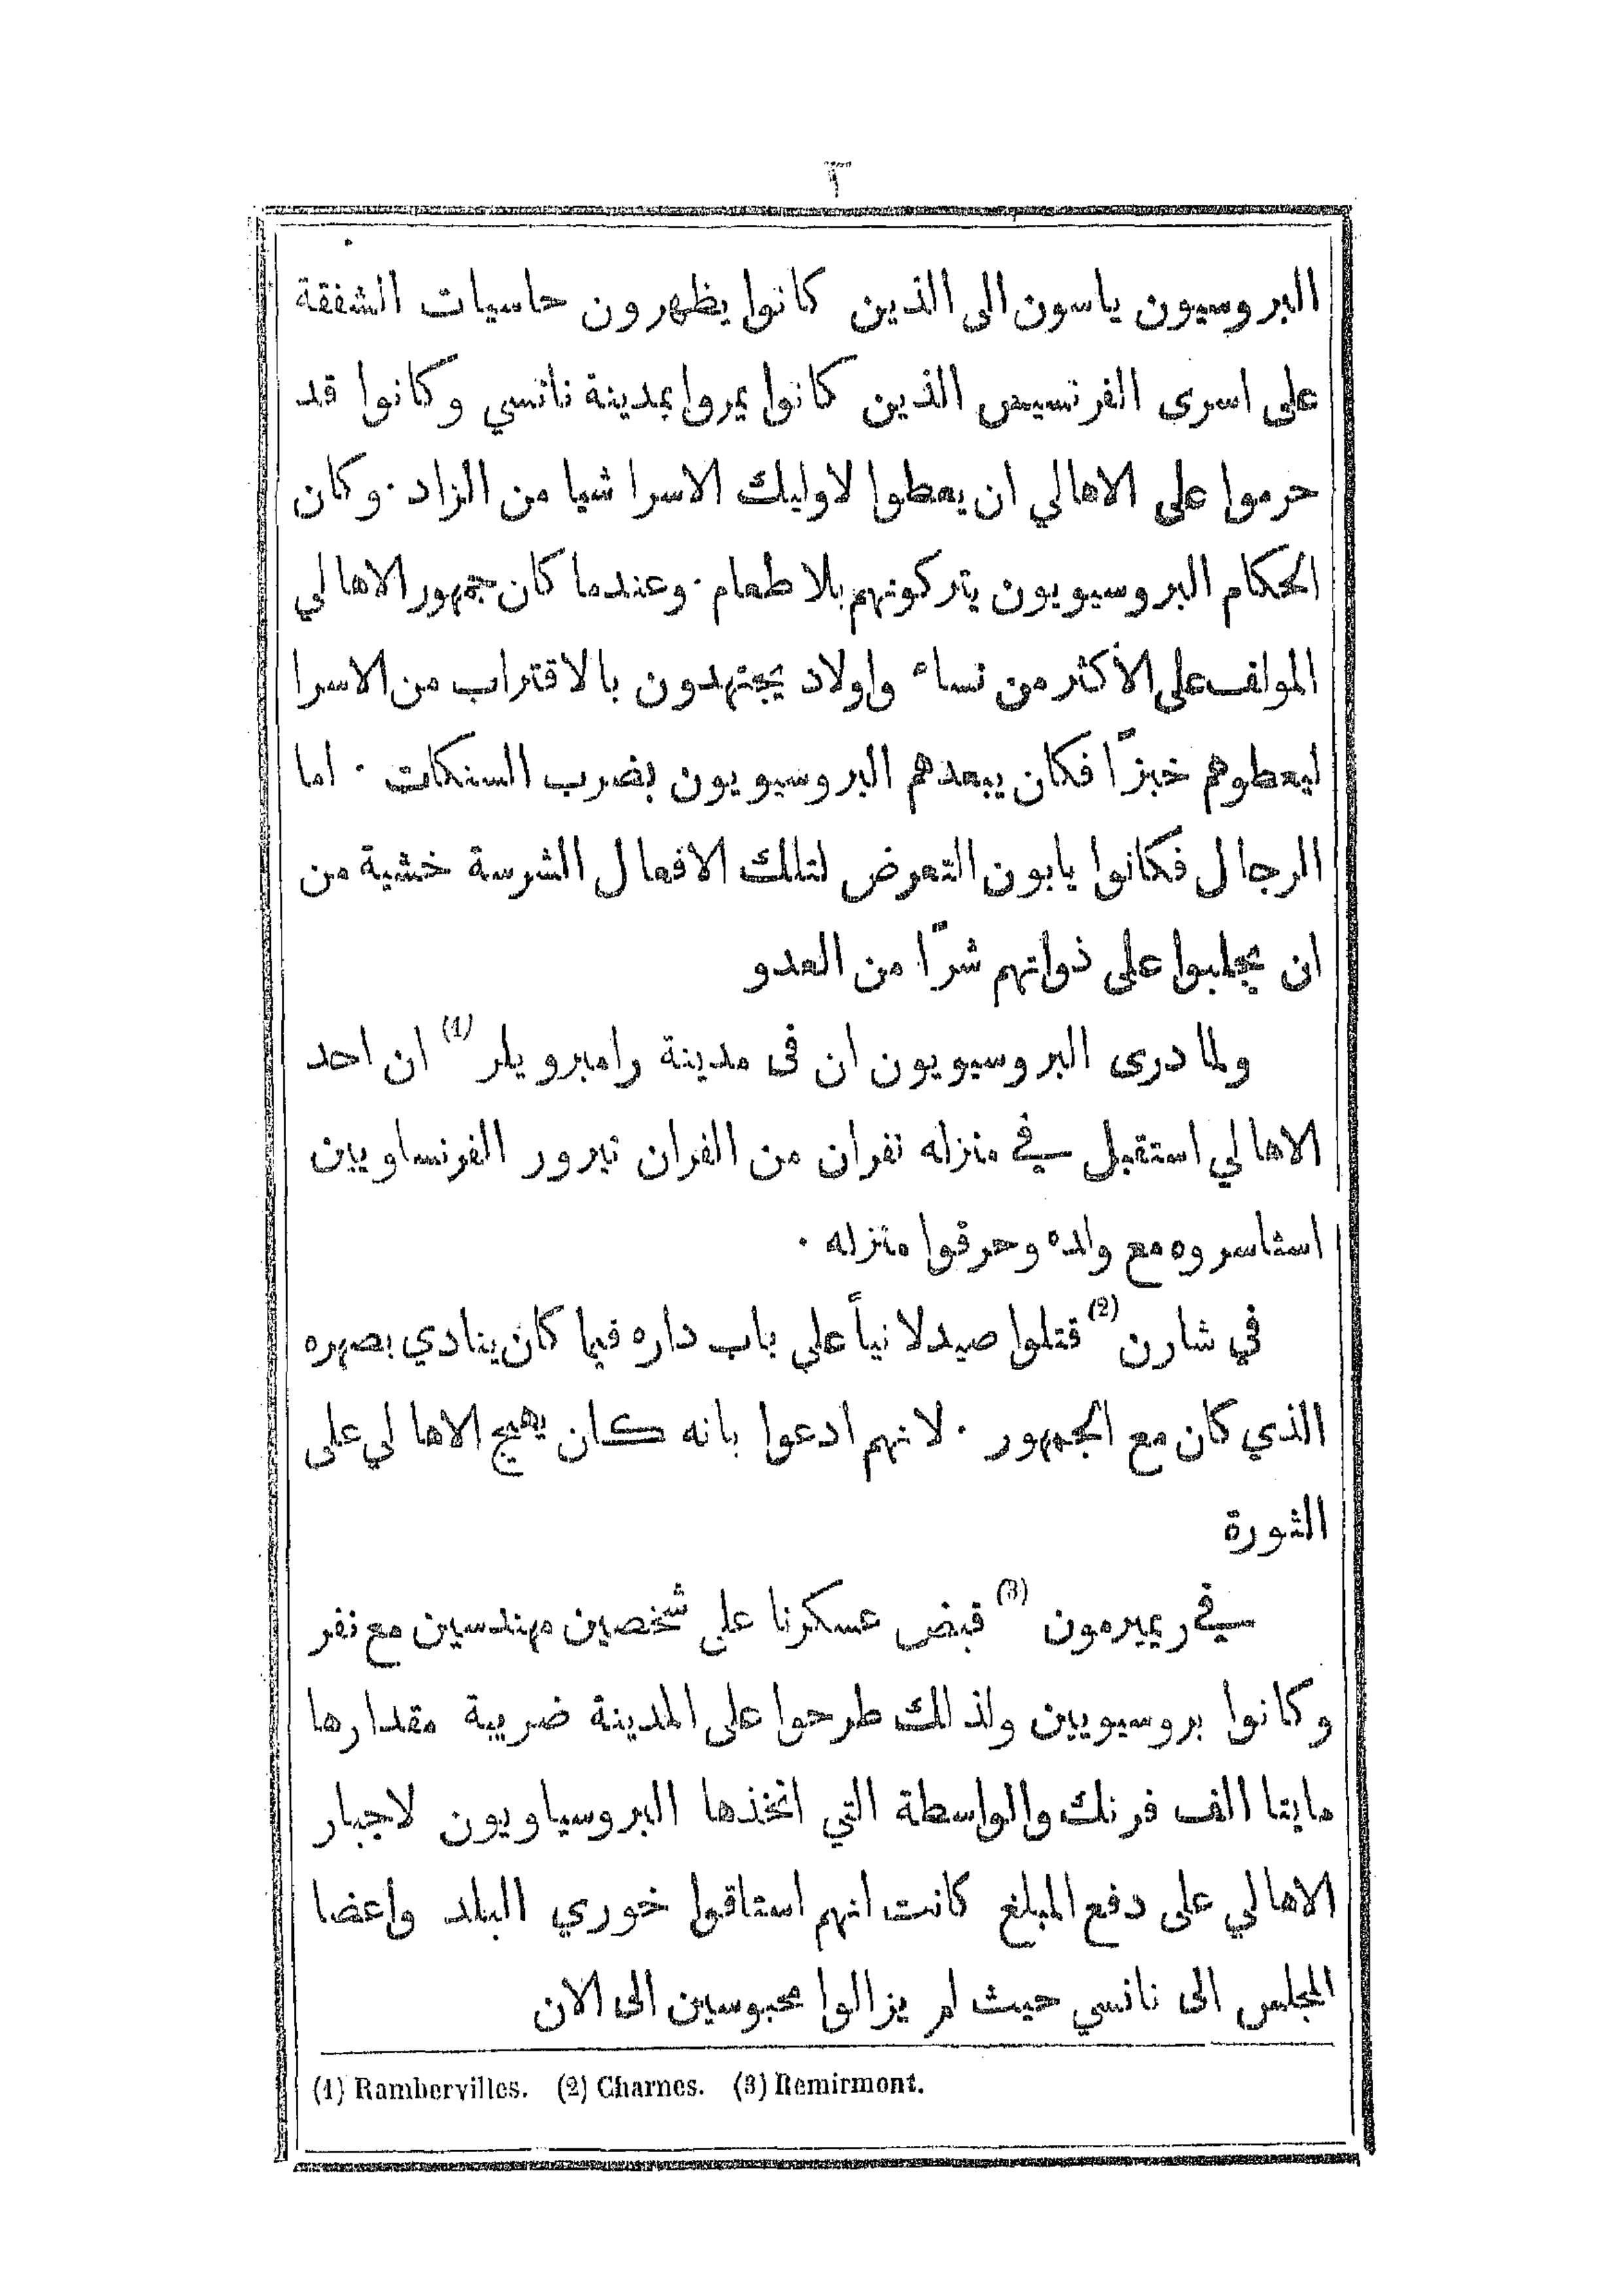 ٣
البروسيون ياسون الى الذين كانوا يظهرون حاسيات الشفقة
على اسرى الفرنسيس الذين كانوا يمروا بمدينة نانسي وكانوا قد
حرموا على الاهالي ان يعطوا لاوليك الاسرا شيا من الزاد ٠ وكان
الحكام البروسيويون يتركونهم بلا طعام ٠ وعندما كان جمهور الاهالي
المولف على الأكثر من نساء واولاد يجتهدون بالاقتراب من الاسرا
ليعطوهم خبزًا فكان يبعدهم البروسيويون بضرب السنكات ٠ اما
الرجال فكانوا يابون التعرض لتلك الافعال الشرسة خشية من
ان يجلبوا على ذواتهم شرًا من العدو
ولما درى البروسيويون ان فى مدينة رامبرويلر (1) ان احد
الاهالي استقبل في منزله نفران من الفران تيرور الفرنساويين
استاسروه مع والده وحرقوا منزله ٠
في شارن (2) قتلوا صيدلانياً على باب داره فيما كان ينادي بصهره
الذي كان مع الجمهور ٠ لانهم ادعوا بانه كان يهيج الاهالي على
الثورة
في ريميرمون (3) قبض عسكرنا على شخصين مهندسين مع نفر
وكانوا بروسيويين ولذلك طرحوا على المدينة ضريبة مقدارها
مايتا الف فرنك والواسطة التي اتخذها البروسياويون لاجبار
الاهالي على دفع المبلغ كانت انهم استاقوا خوري البلد واعضا
المجلس الى نانسي حيث لم يزالوا محبوسين الى الان
(1) Rambervilles. (2) Charnes. (3) Remirmont.